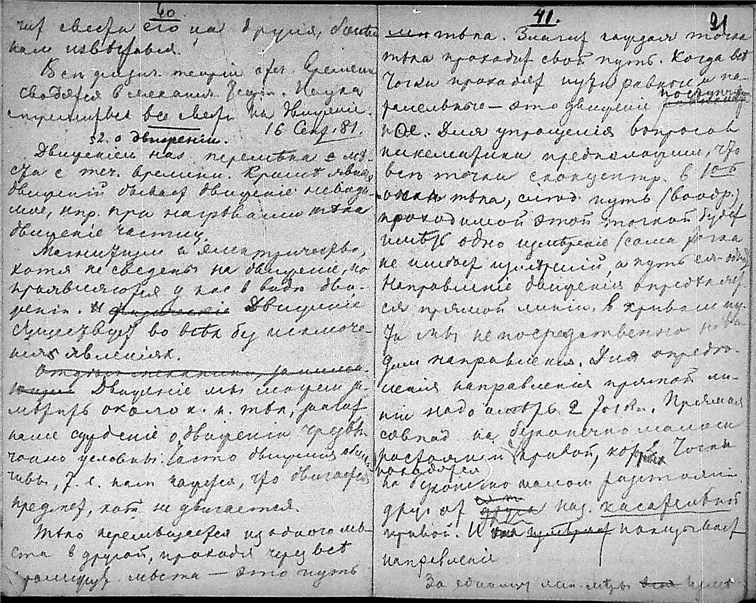 40
чит свести его на другия,
нам известныя.
Все физич. теории
сводятся
стремится все свести на движение.
16 Сент. 81.
§2. о движении.
Движением наз. перемена ме-
ста с теч. времени. Кроме явнаго
движений бывает движение невиди-
мое, нпр. при нагревании тела
движение частиц.
Магнитизм и электричество,
хотя не сведены на движение, но
проявляются у нас в виде дви-
жения. И Движение
существует во всех без исключе-
ния явлениях.
Движение мы можем за-
метить около к. н. тел, значит
наше суждение о движении чрезвы-
чайно условны. Часто движения
чивы, т. е. нам кажется, что двигается
предмет, хотя не двигается.
Тело перемещается из одного ме-
ста в другой, проходя через все
места – это путь
41.
21
тела. Значит каждая точка
тела проходит свой путь. Когда все
точки проходят пути равные и па-
раллельные – это движение поступатель-
ное. Для упрощения вопросов
кинематики предположим, что
все точки сконцентр. в 1ой
точке тела, след. путь (вообр.)
проходимой этой точкой будет
иметь одно измерение (сама точка
не имеет измерений, а путь ея одно)
Направление движения определяет-
ся прямой линии. В кривом пу-
ти мы непосредственно не ви-
дим направления. Для опреде-
ления направления прямой ли-
нии надо иметь 2 точки. Прямая
совпад. на безконечно малом
разстоянии с кривой, точки
находятся
на безконечно малом разстоянии
друг от друга наз. касательной
кривой. И показывает
направление
За единицу